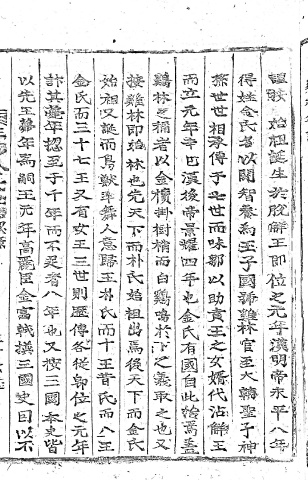 謹按 始祖誕生於脫解王卽位之元年漢明帝永平八年
得姓金氏者以閼智養爲王子國號雞林官至大輔聖子神
孫世世相承傳于七世而味鄒以助賁王之女婿代沾解王
而立元年辛巳漢後帝景耀四年也金氏有國自此始焉盖
雞林之稱者以金櫝掛樹梢而白鷄鳴於下之義取之也又
按雞林卽始林也先天下而朴氏始祖出焉後天下而金氏
始祖又誕而鳥獸率舞人意歸王朴氏而十王昔氏而八王
金氏而三十七王又有女王三世則歷傳各從卽位之元年
計其蓽年恐至于千年而不足者八年也又按三國本史皆
以先王薨年爲嗣王元年高麗臣金富軾撰三國史曰以不